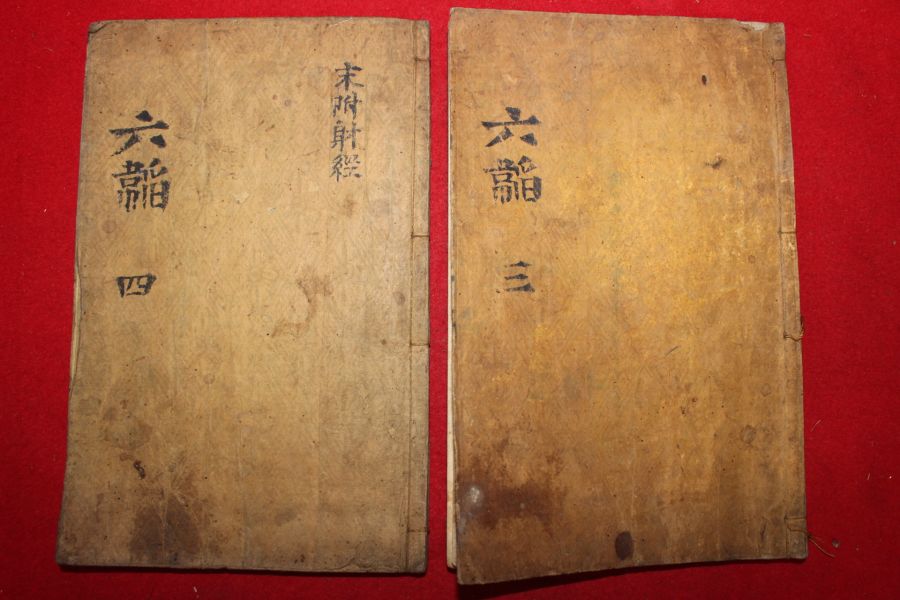 六韜 三
末附射經
六韜 四